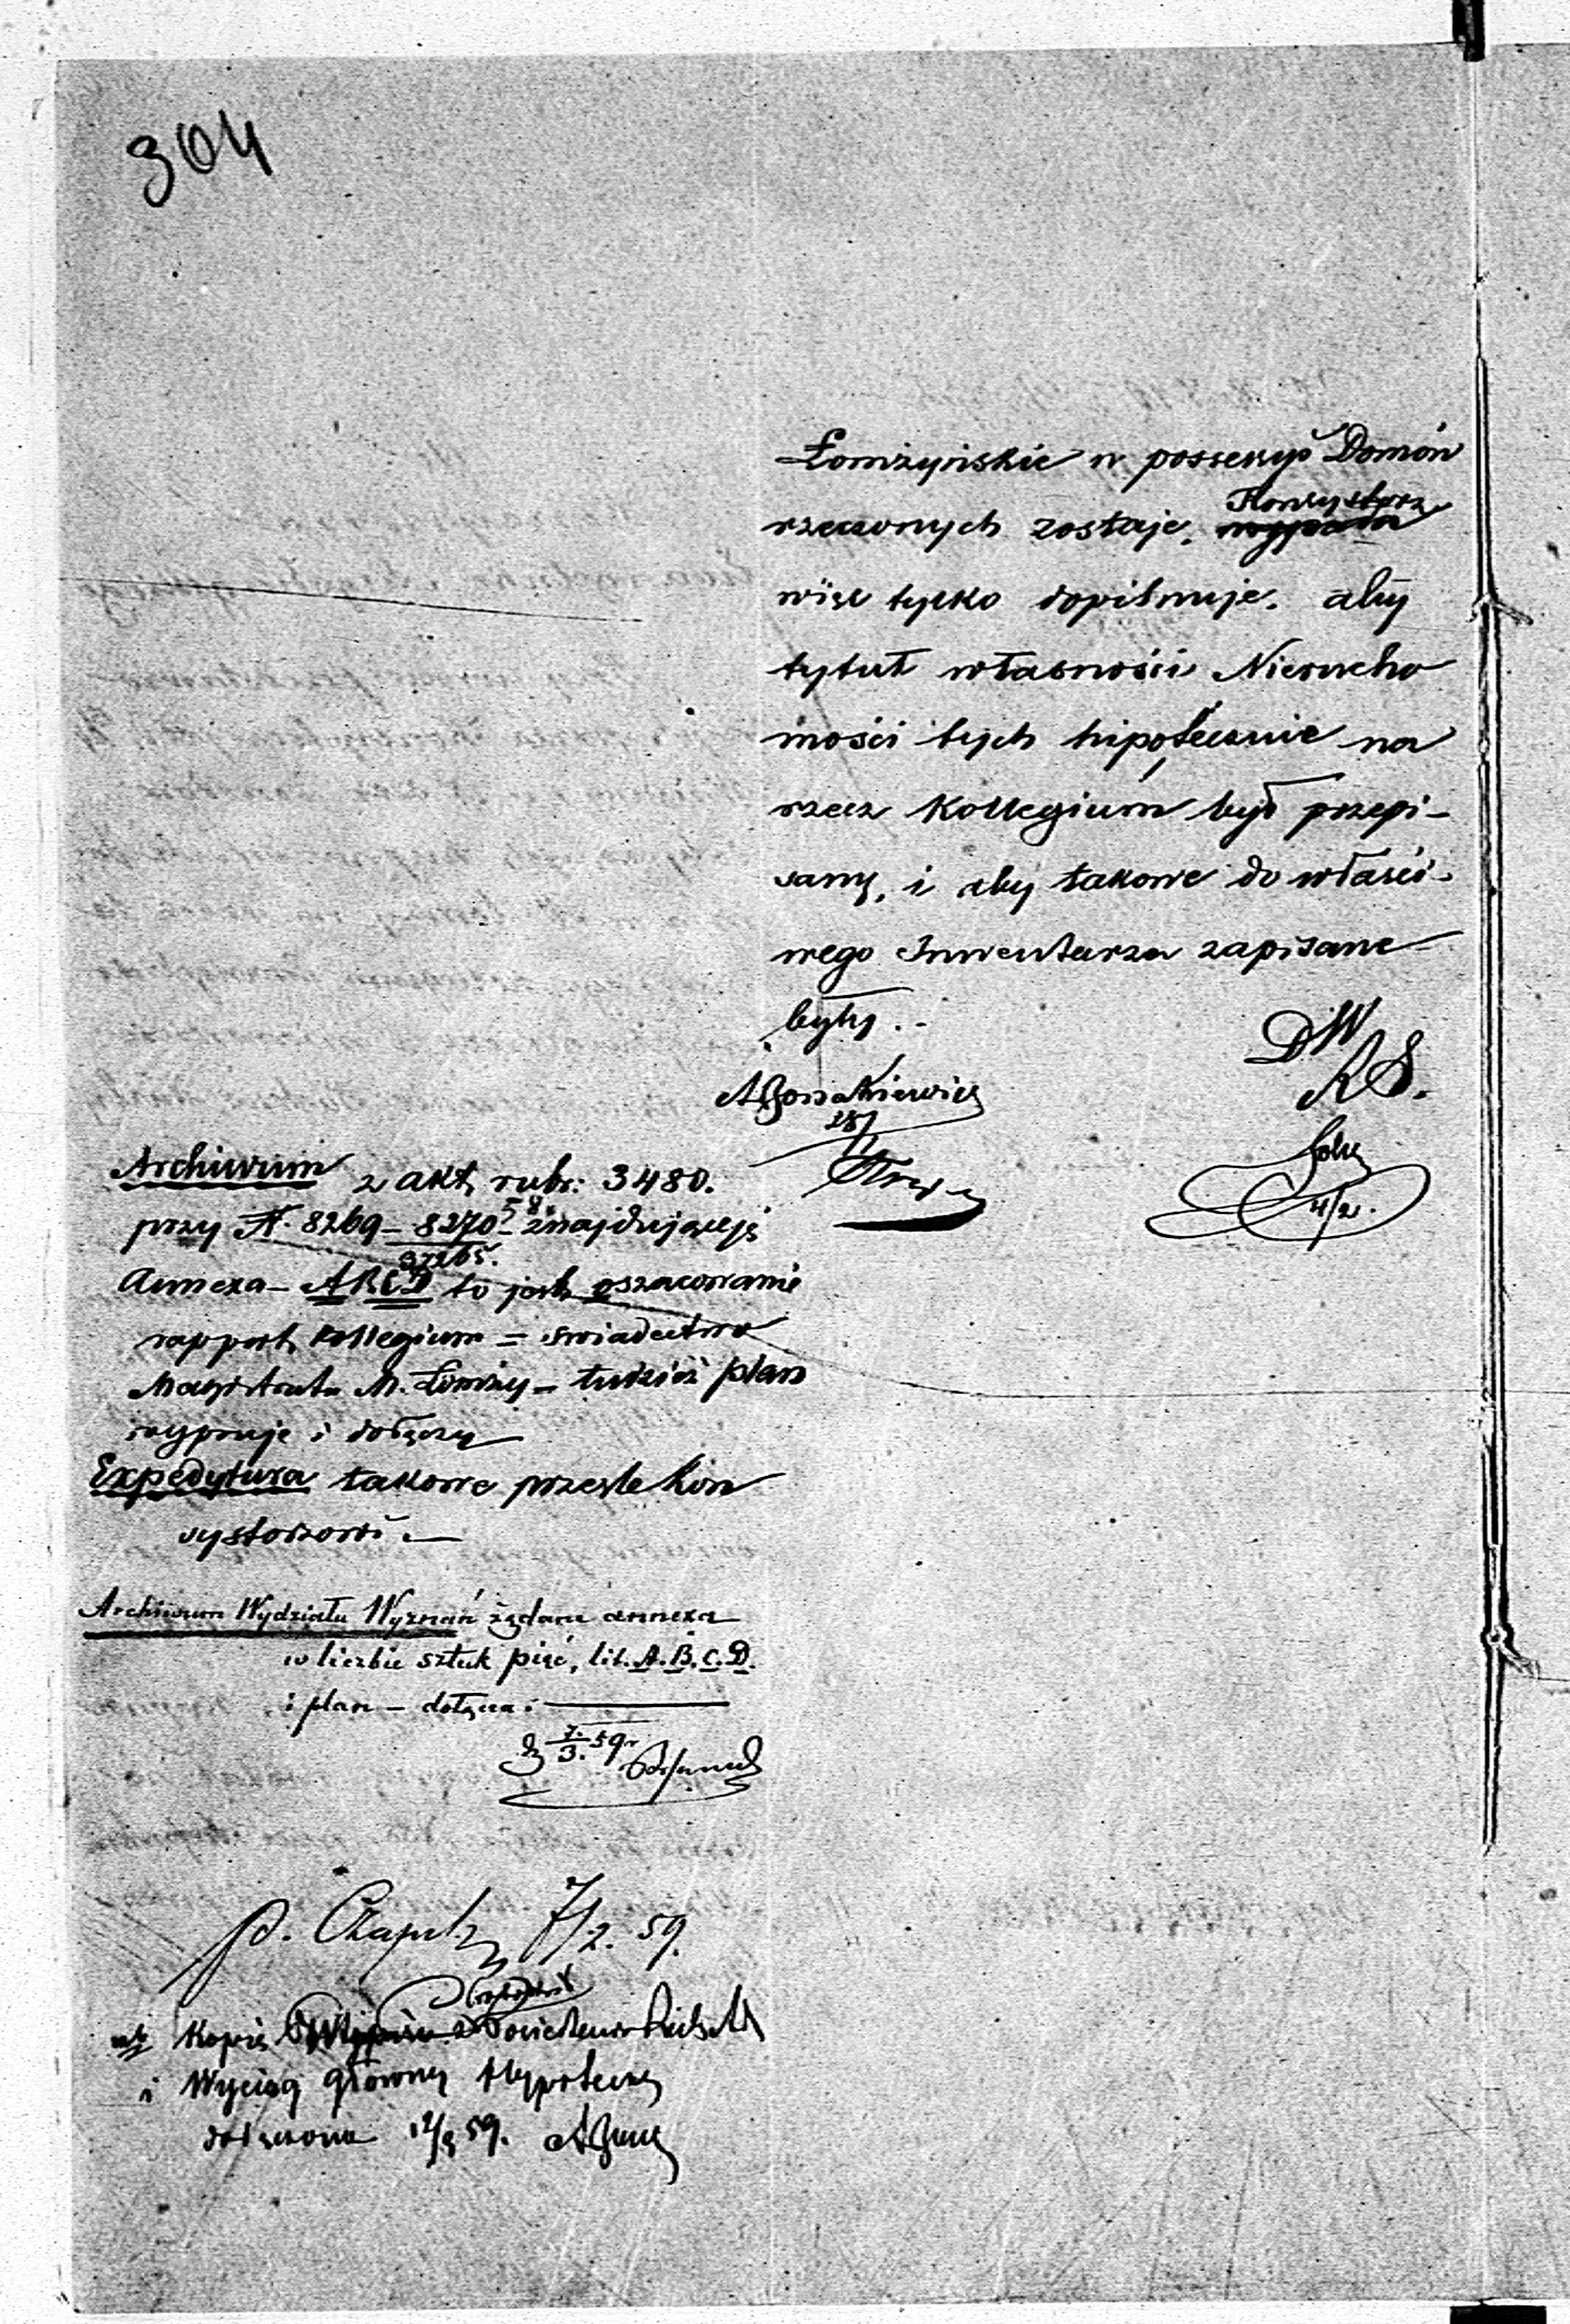 304
Łomżyńskie w possessyi Domów
rzeczonych zostaje, Konsystorz
więc tylko dopilnuje, aby
tytuł własności Nierucho
mości tych hipotecznie na
rzecz Kollegium był przepi-
sany, i aby takowe do właści-
wego Inwentarza zapisane
były.
DW
KS.
4/2.
Archiwum z akt, rubr: 3480.
przy N. 8269 – 8270 znajdujące się
Annexa – ABCD to jest oszacowanie
rapport, Kollegium = świadectwo
Magistratu M. Łomży – tudzież plan
wyjmuje i dołączy
Expedytura takowe prześle Kon
systorzowi –
Archiwum Wydziału Wyznań żądane annexa
w liczbie sztuk pięć, lit. A. B. C. D.
i plan – dołącza.
7/3. 59
P. 7/2. 59.
Kopia
i Wyciąg główny Hypoteczny
dołączono 59.